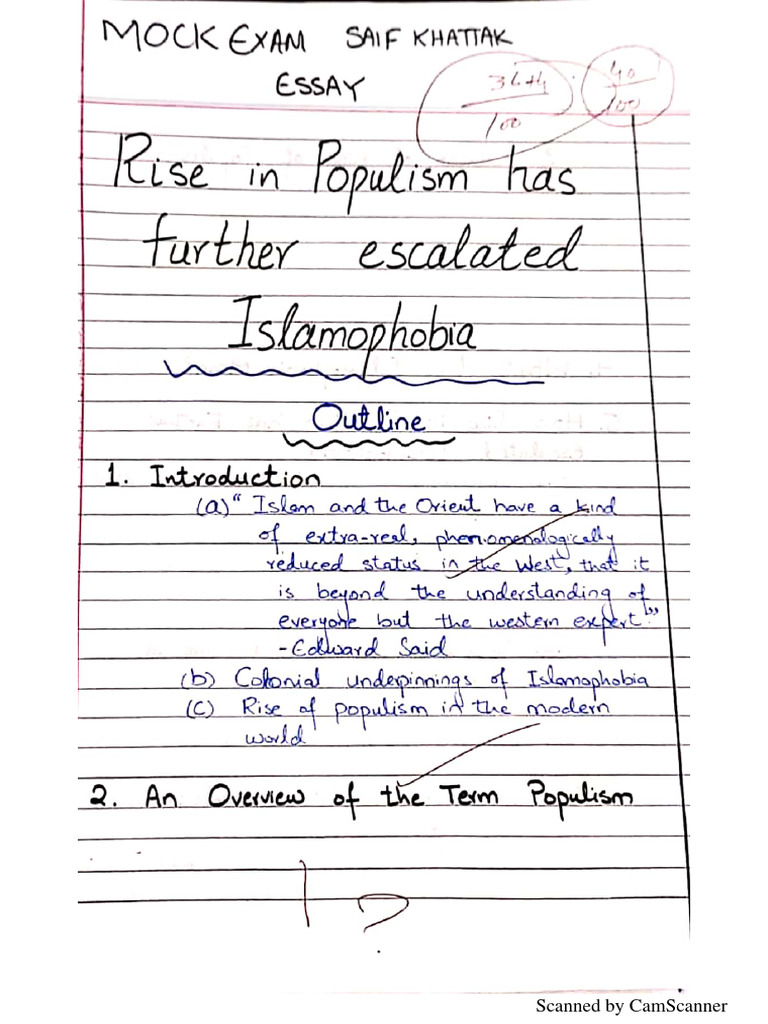 MOCK EXAM SAIF KHATTAK
ESSAY
36+4
100
40
100
Rise in Populism has
further escalated
Islamophobia
Outline
1. Introduction
(a) "Islam and the Orient have a kind
of extra-real, phenomenologically
reduced status in the West, that it
is beyond the understanding of
everyone but the western expert."
- Edward Said
(b) Colonial underpinnings of Islamophobia
(c) Rise of populism in the modern
world
2. An Overview of the Term Populism
Scanned by CamScanner